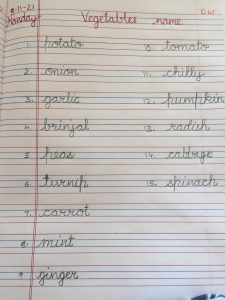 8-11-21
Monday
Vegetables name
C.W
1. potato
2. onion
3. garlic
4. brinjal
5. peas
6. turnip
7. carrot
8. mint
9. ginger
10. tomato
11. chilly
12. pumpkin
13. radish
14. cabbage
15. spinach